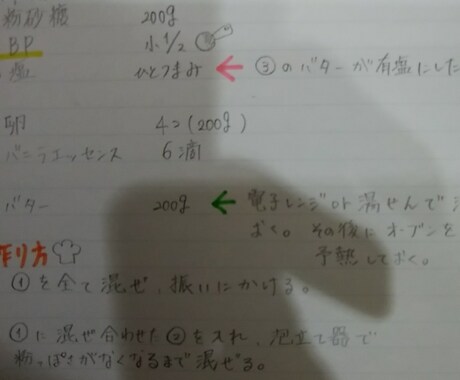 粉砂糖 200g
BP 小1/2
塩 ひとつまみ ← ③のバターが有塩にした
卵 4コ(200g)
バニラエッセンス 6滴
バター 200g ← 電子レンジor湯せんで
おく。その後にオーブンを
予熱しておく。
作り方
①を全て混ぜ、振いにかける。
①に混ぜ合わせた②を入れ、泡立て器で
粉っぽさがなくなるまで混ぜる。